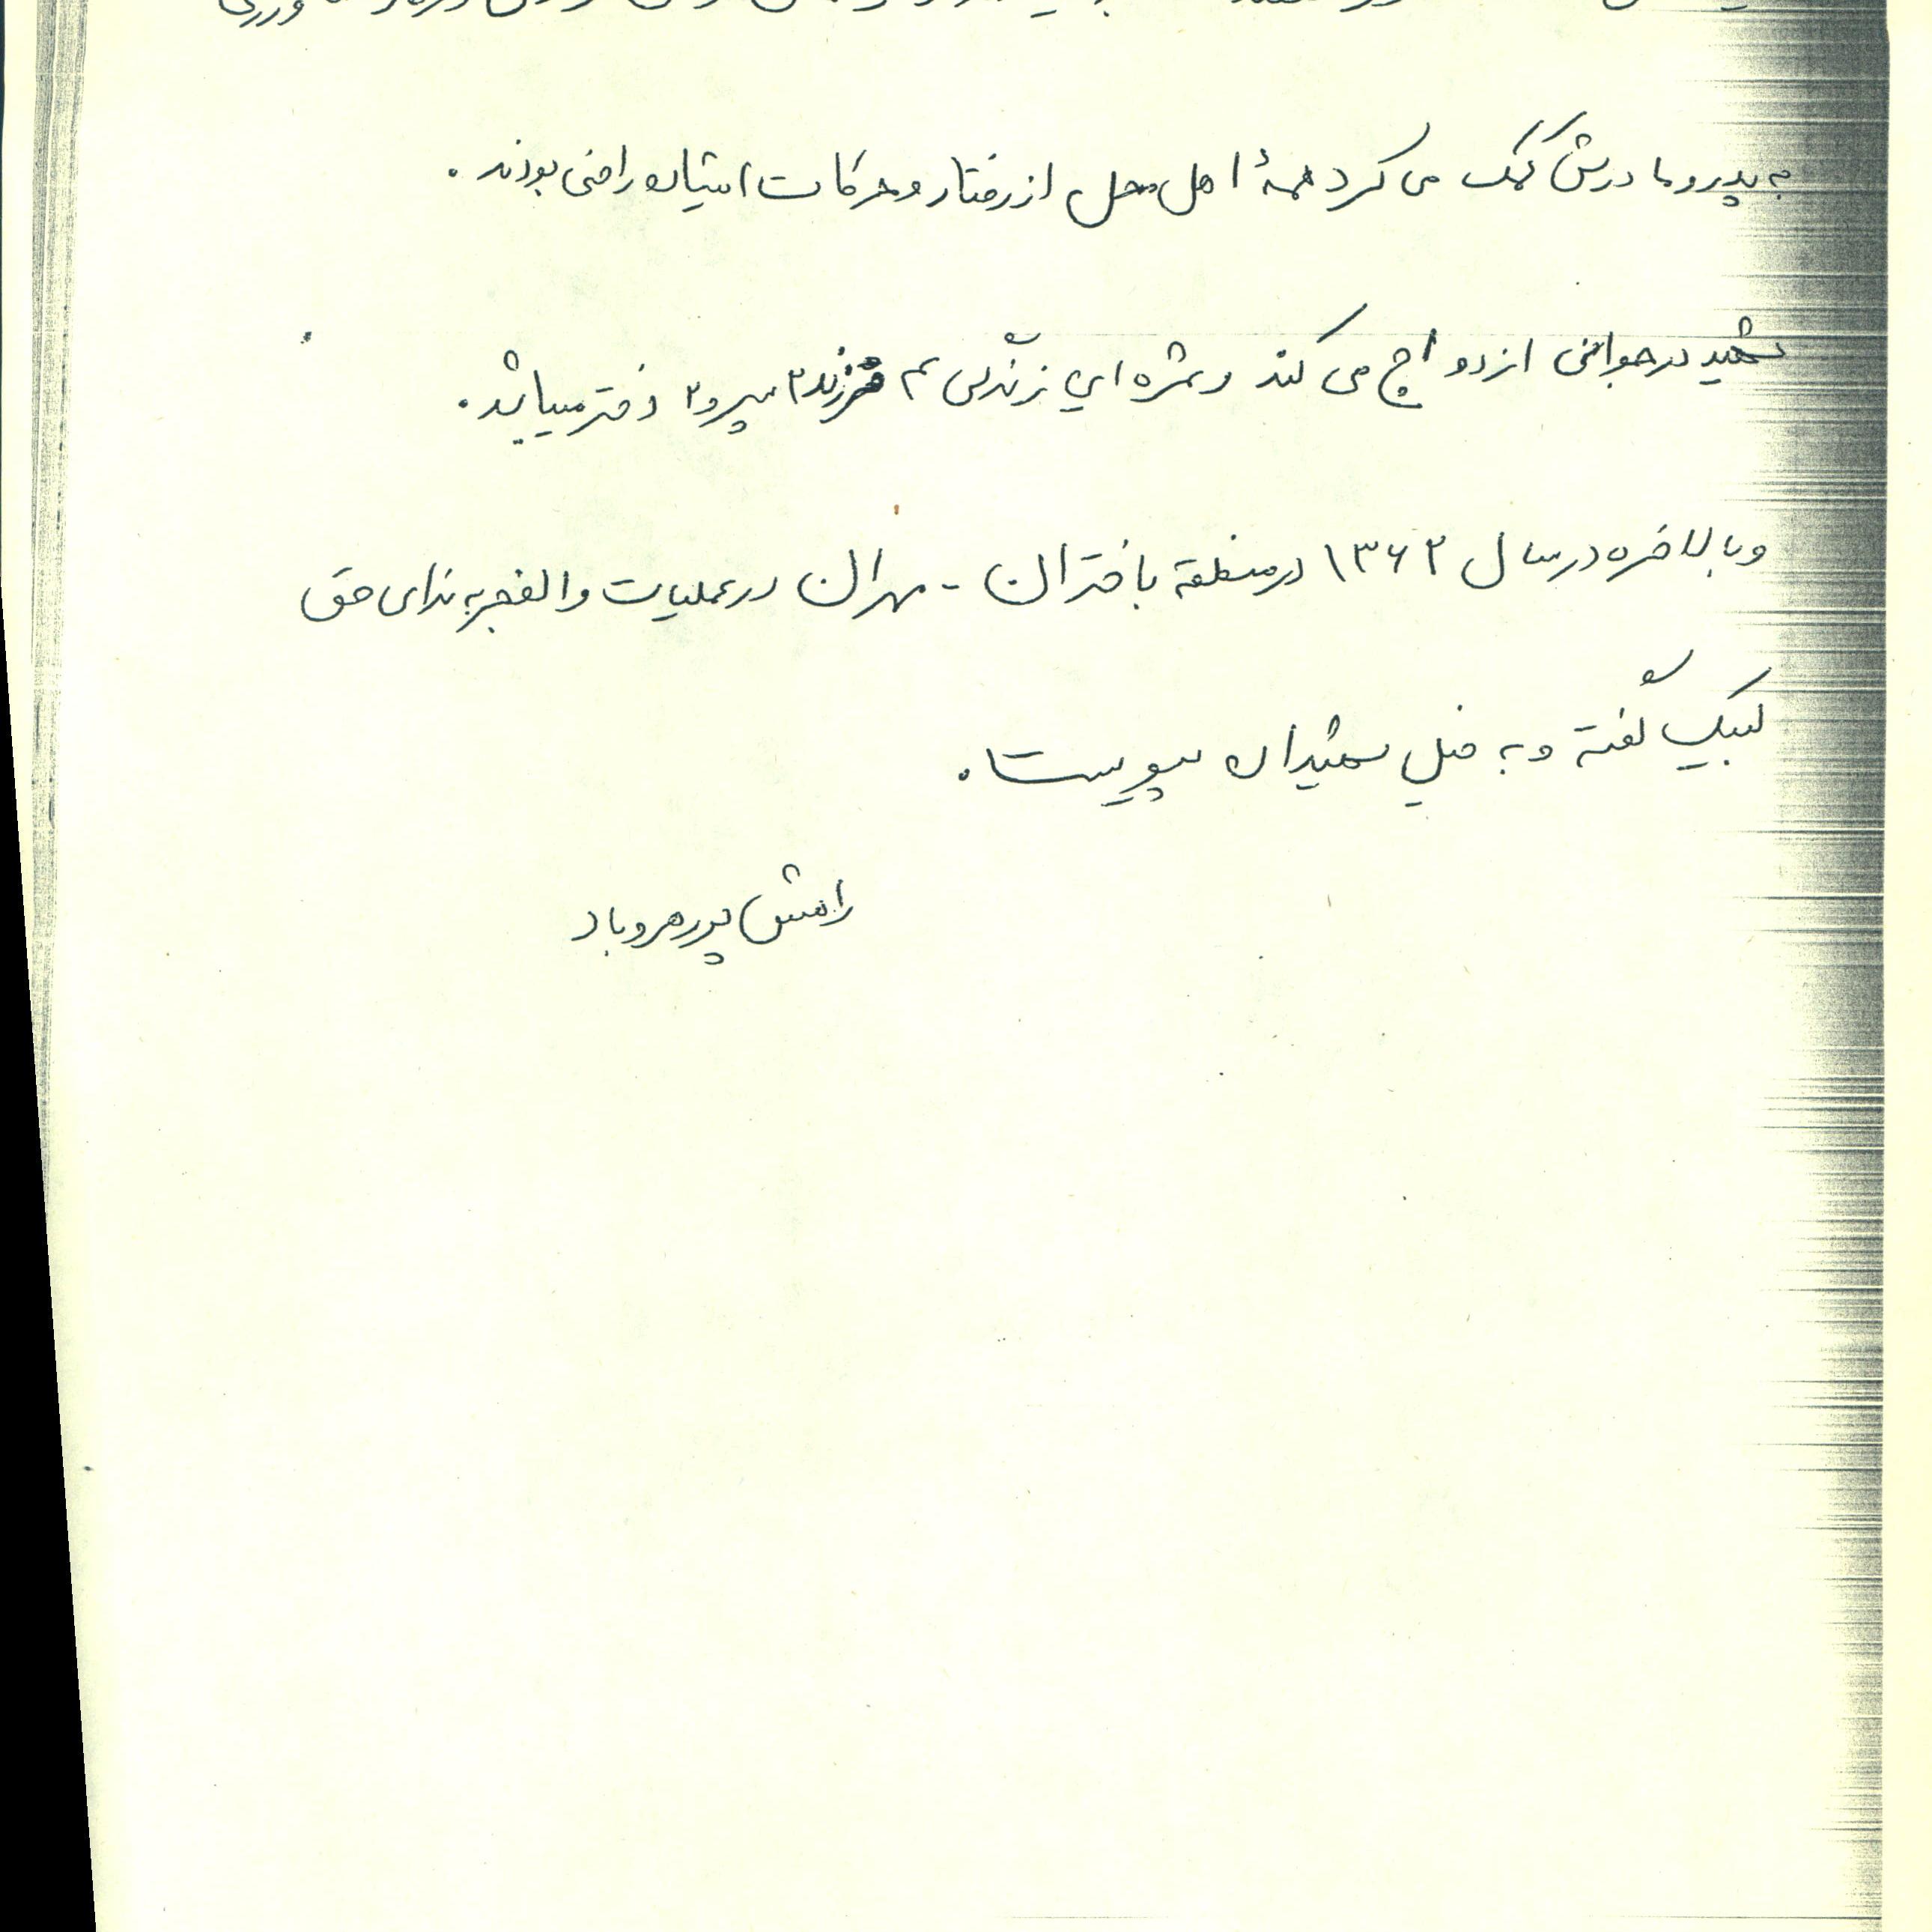 به پدر و مادرش کمک می کرد همهٔ اهل محل از رفتار و حرکات ایشان راضی بودند.
شهید در جوانی ازدواج می کند و ثمره این زندگی ۴ فرزند ۲ پسر و ۲ دختر میباشد.
و بالاخره در سال ۱۳۶۲ در منطقه باختران - مهران در عملیات والفجر به ندای حق
لبیک گفته و به خیل شهیدان پیوست.
رامش پور